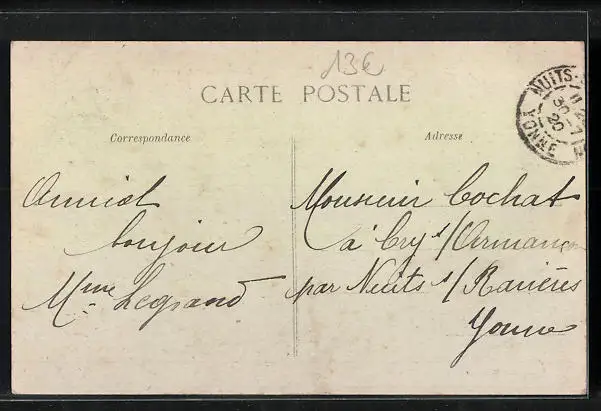 13€
CARTE POSTALE
Correspondance
Adresse
NUITS-S
30-7
20
YONNE
Amical
bonjour
Mme Legrand
Monsieur Cochat
à Cry s/Armançon
par Nuits s/ Ravières
Yonne